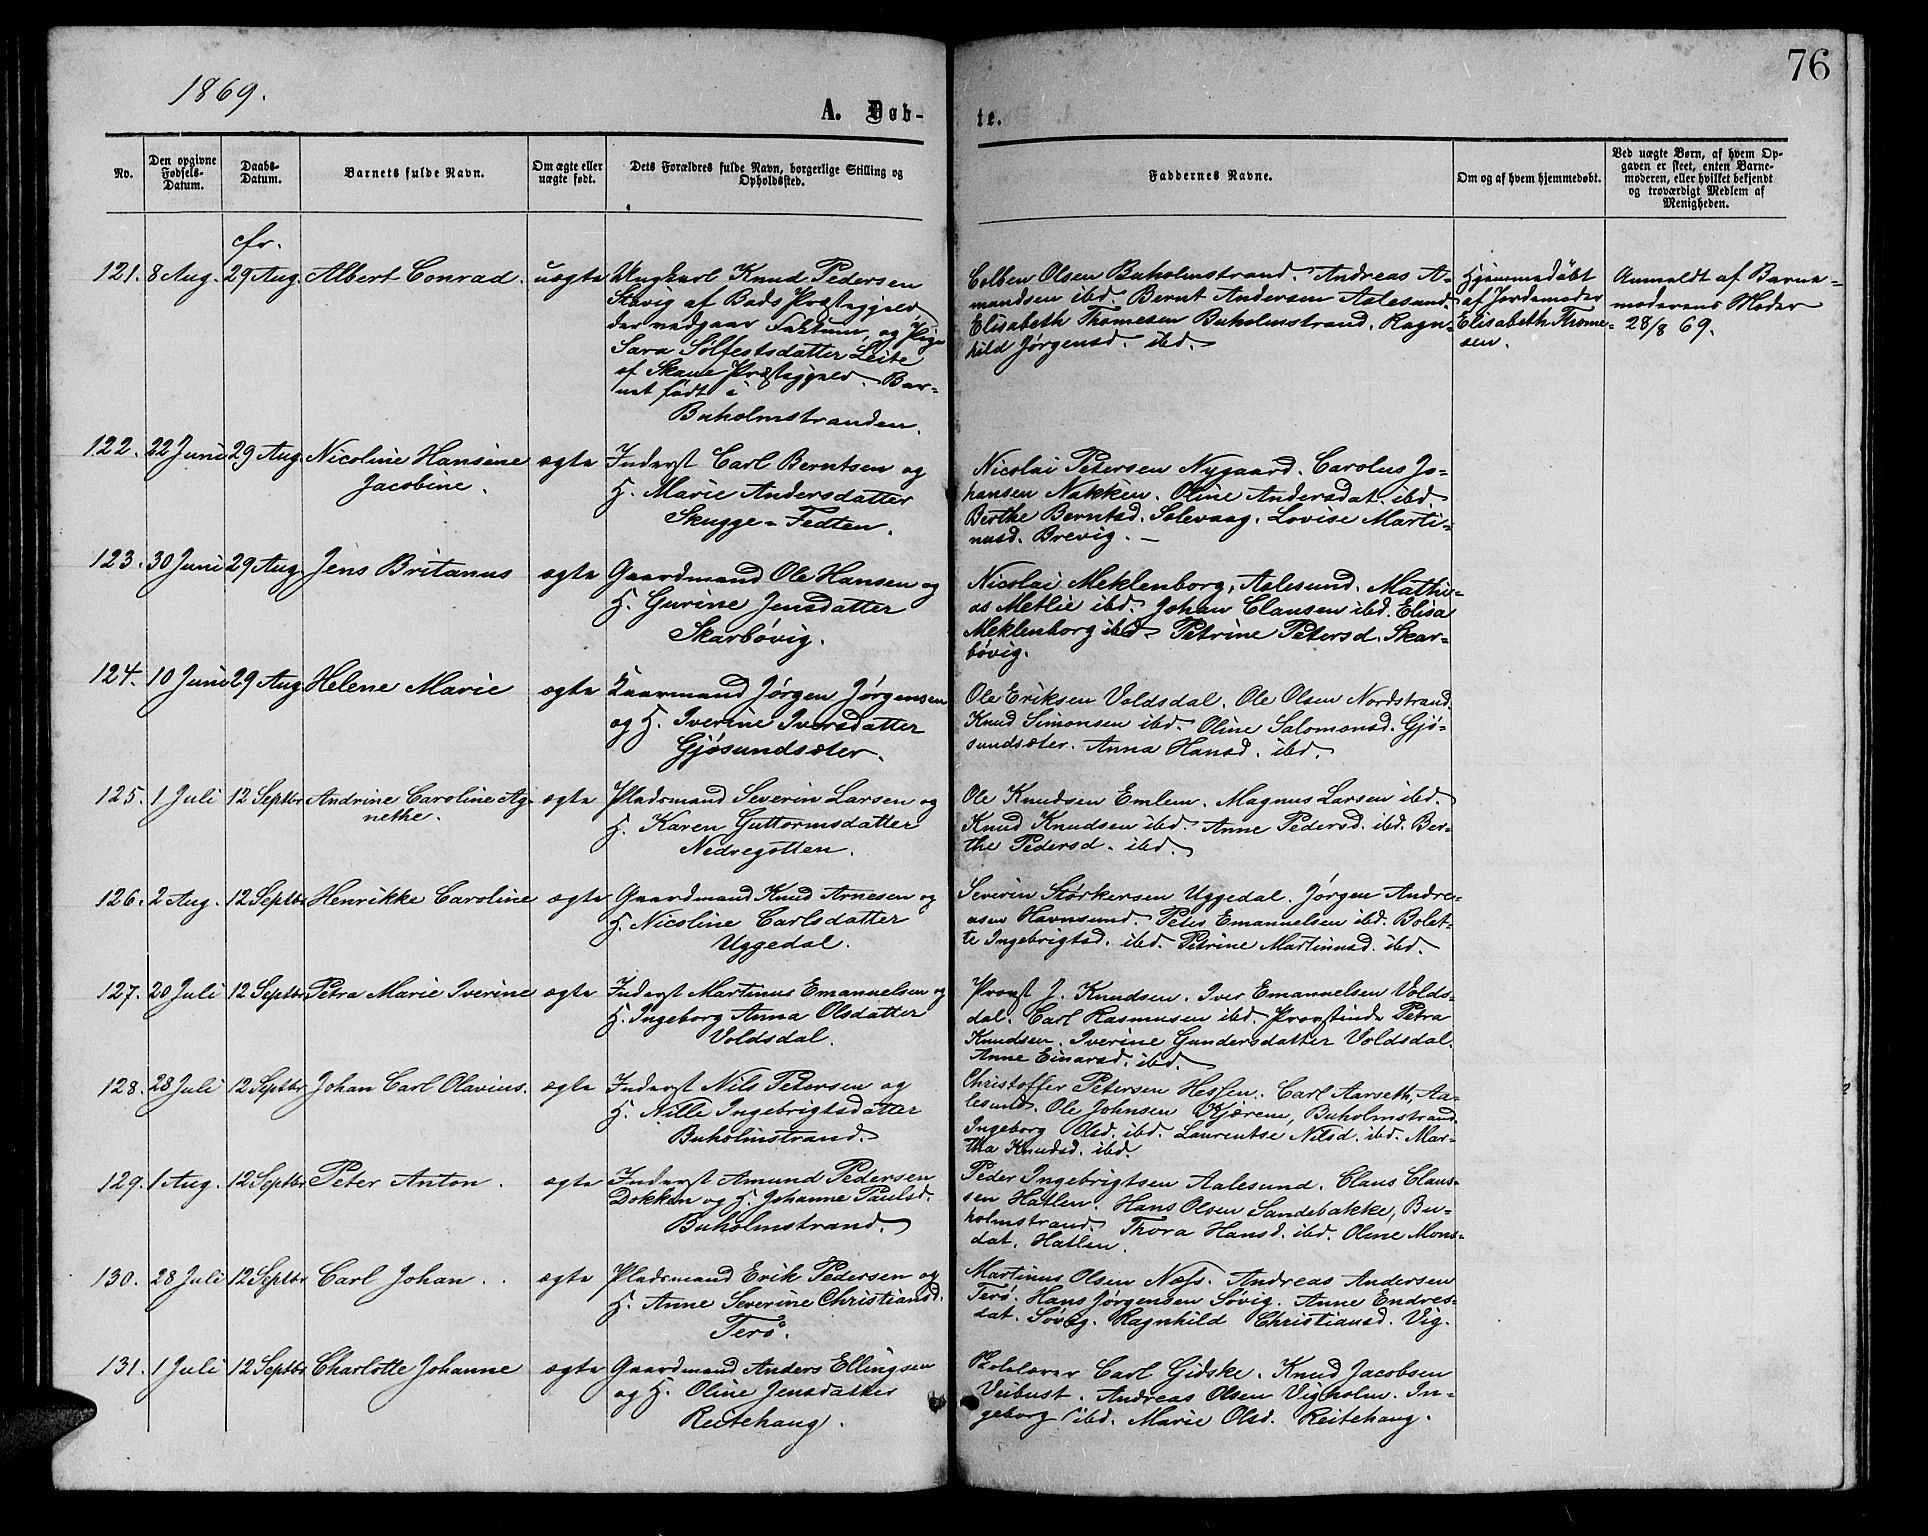 1869.
76
A. Døb-
te.
No.
Den opgivne
Fødsels-
Datum.
Daabs-
Datum.
Barnets fulde Navn.
Om ægte eller
uægte født.
Dets Forældres fulde Navn, borgerlige Stilling og
Opholdssted.
Faddernes Navne.
Om og af hvem hjemmedøbt.
Ved uægte Børn, af hvem Op-
gaven er skeet, enten Barne-
moderen, eller hvilket bekjendt
og troværdigt Medlem af
Menigheden.
cfr.
121. 8 Aug. 29 Aug. Albert Conrad. uægte Ungkarl Knud Pedersen
af Buds Præstegjeld,
der vedgaar Faktum, og Pige
Sara Solfestsdatter Leite
af Præstegjeld. Bar-
net født i
Buholmstranden.
Colben Olsen Buholmstrand. Andreas A-
mundsen ibd. Bernt Andersen Aalesund.
Elisabeth Thomesen Buholmstrand. Ragn-
hild Jørgensd. ibd.
Hjemmedøbt
af Jordemoder
Elisabeth Thome-
sen.
Anmeldt af Barne-
moderens Moder
28/8 69.
122. 22 Juni 29 Aug. Nicoline Hansine ægte Inderst Carl Berntsen og
Jacobine. H. Marie Andersdatter
Skugge-Fedten.
Nicolai Petersen Nygaard. Carolus Jo-
hansen Nakken. Oline Andersdat. ibd.
Berthe Berntsd. Solevaag. Lovise Marti-
nusd. Brevig. –
123. 30 Juni 29 Aug. Jens Britanus ægte Gaardmand Ole Hansen og
H. Gurine Jensdatter
Skarbøvig.
Nicolai Meklenborg, Aalesund. Mathi-
as Metlie ibd. Johan Clausen ibd. Elisa
Meklenborg ibd. Petrine Petersd. Skar-
bøvig.
124. 10 Juni 29 Aug. Helene Marie ægte Kaarmand Jørgen Jørgensen
og H. Iverine Iversdatter
Gjøsundsæter.
Ole Eriksen Voldsdal. Ole Olsen Nordstrand.
Knud Simonsen ibd. Oline Salomonsd. Gjø-
sundsæter. Anna Hansd. ibd.
125. 1 Juli 12 Septbr. Andrine Caroline Ag- ægte Pladsmand Severin Larsen og
nethe. H. Karen Guttormsdatter
Nedregotten.
Ole Knudsen Emlem. Magnus Larsen ibd.
Knud Knudsen ibd. Anne Pedersd. ibd. Ber-
the Pedersd. ibd.
126. 2 Aug. 12 Septbr. Henrikke Caroline ægte Gaardmand Knud Arnesen og
H. Nicoline Carlsdatter
Uggedal.
Severin Størkersen Uggedal. Jørgen Andre-
asen Havnsund. Peter Emanuelsen ibd. Bolet-
te Ingebrigtsd. ibd. Petrine Martinusd. ibd.
127. 20 Juli 12 Septbr. Petra Marie Iverine ægte Inderst Martinus Emanuelsen og
H. Ingeborg Anna Olsdatter
Voldsdal.
Provst J. Knudsen. Iver Emanuelsen Volds-
dal. Carl Rasmusen ibd. Provstinde Petra
Knudsen. Iverine Gundersdatter Voldsdal.
Anne Einarsd. ibd.
128. 28 Juli 12 Septbr. Johan Carl Olavius. ægte Inderst Nils Petersen og
H. Nille Ingebrigtsdatter
Buholmstrand.
Christoffer Petersen Hessen. Carl Aarseth, Aa-
lesund. Ole Johnsen Kjærem, Buholmstrand.
Ingeborg Olsd. ibd. Laurentse Nilsd. ibd. Mar-
tha Knudsd. ibd.
129. 1 Aug. 12 Septbr. Peter Anton. ægte Inderst Amund Pedersen
Dokken og H. Johanne Paulsd.
Buholmstrand.
Peder Ingebrigtsen Aalesund. Claus Claus-
sen Hatlen. Hans Olsen Sandebakke, Bu-
holmstrand. Thora Hansd. ibd. Oline Mons-
dat. Hatlen.
130. 28 Juli 12 Septbr. Carl Johan. ægte Pladsmand Erik Pedersen og
H. Anne Severine Christiansd.
Terø.
Martinus Olsen Næss. Andreas Andersen
Terø. Hans Jørgensen Søvig. Anne Endres-
dat. Søvig. Ragnhild Christiansd. Vig.
131. 1 Juli 12 Septbr. Charlotte Johanne ægte Gaardmand Anders Ellingsen
og H. Oline Jensdatter
Reitehaug.
Skolelærer Carl Gidske. Knud Jacobsen
Veibust. Andreas Olsen Vigholm. In-
geborg ibd. Marie Olsd. Reitehaug.